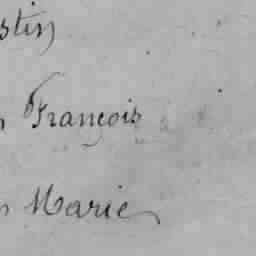 stin
François
Marie